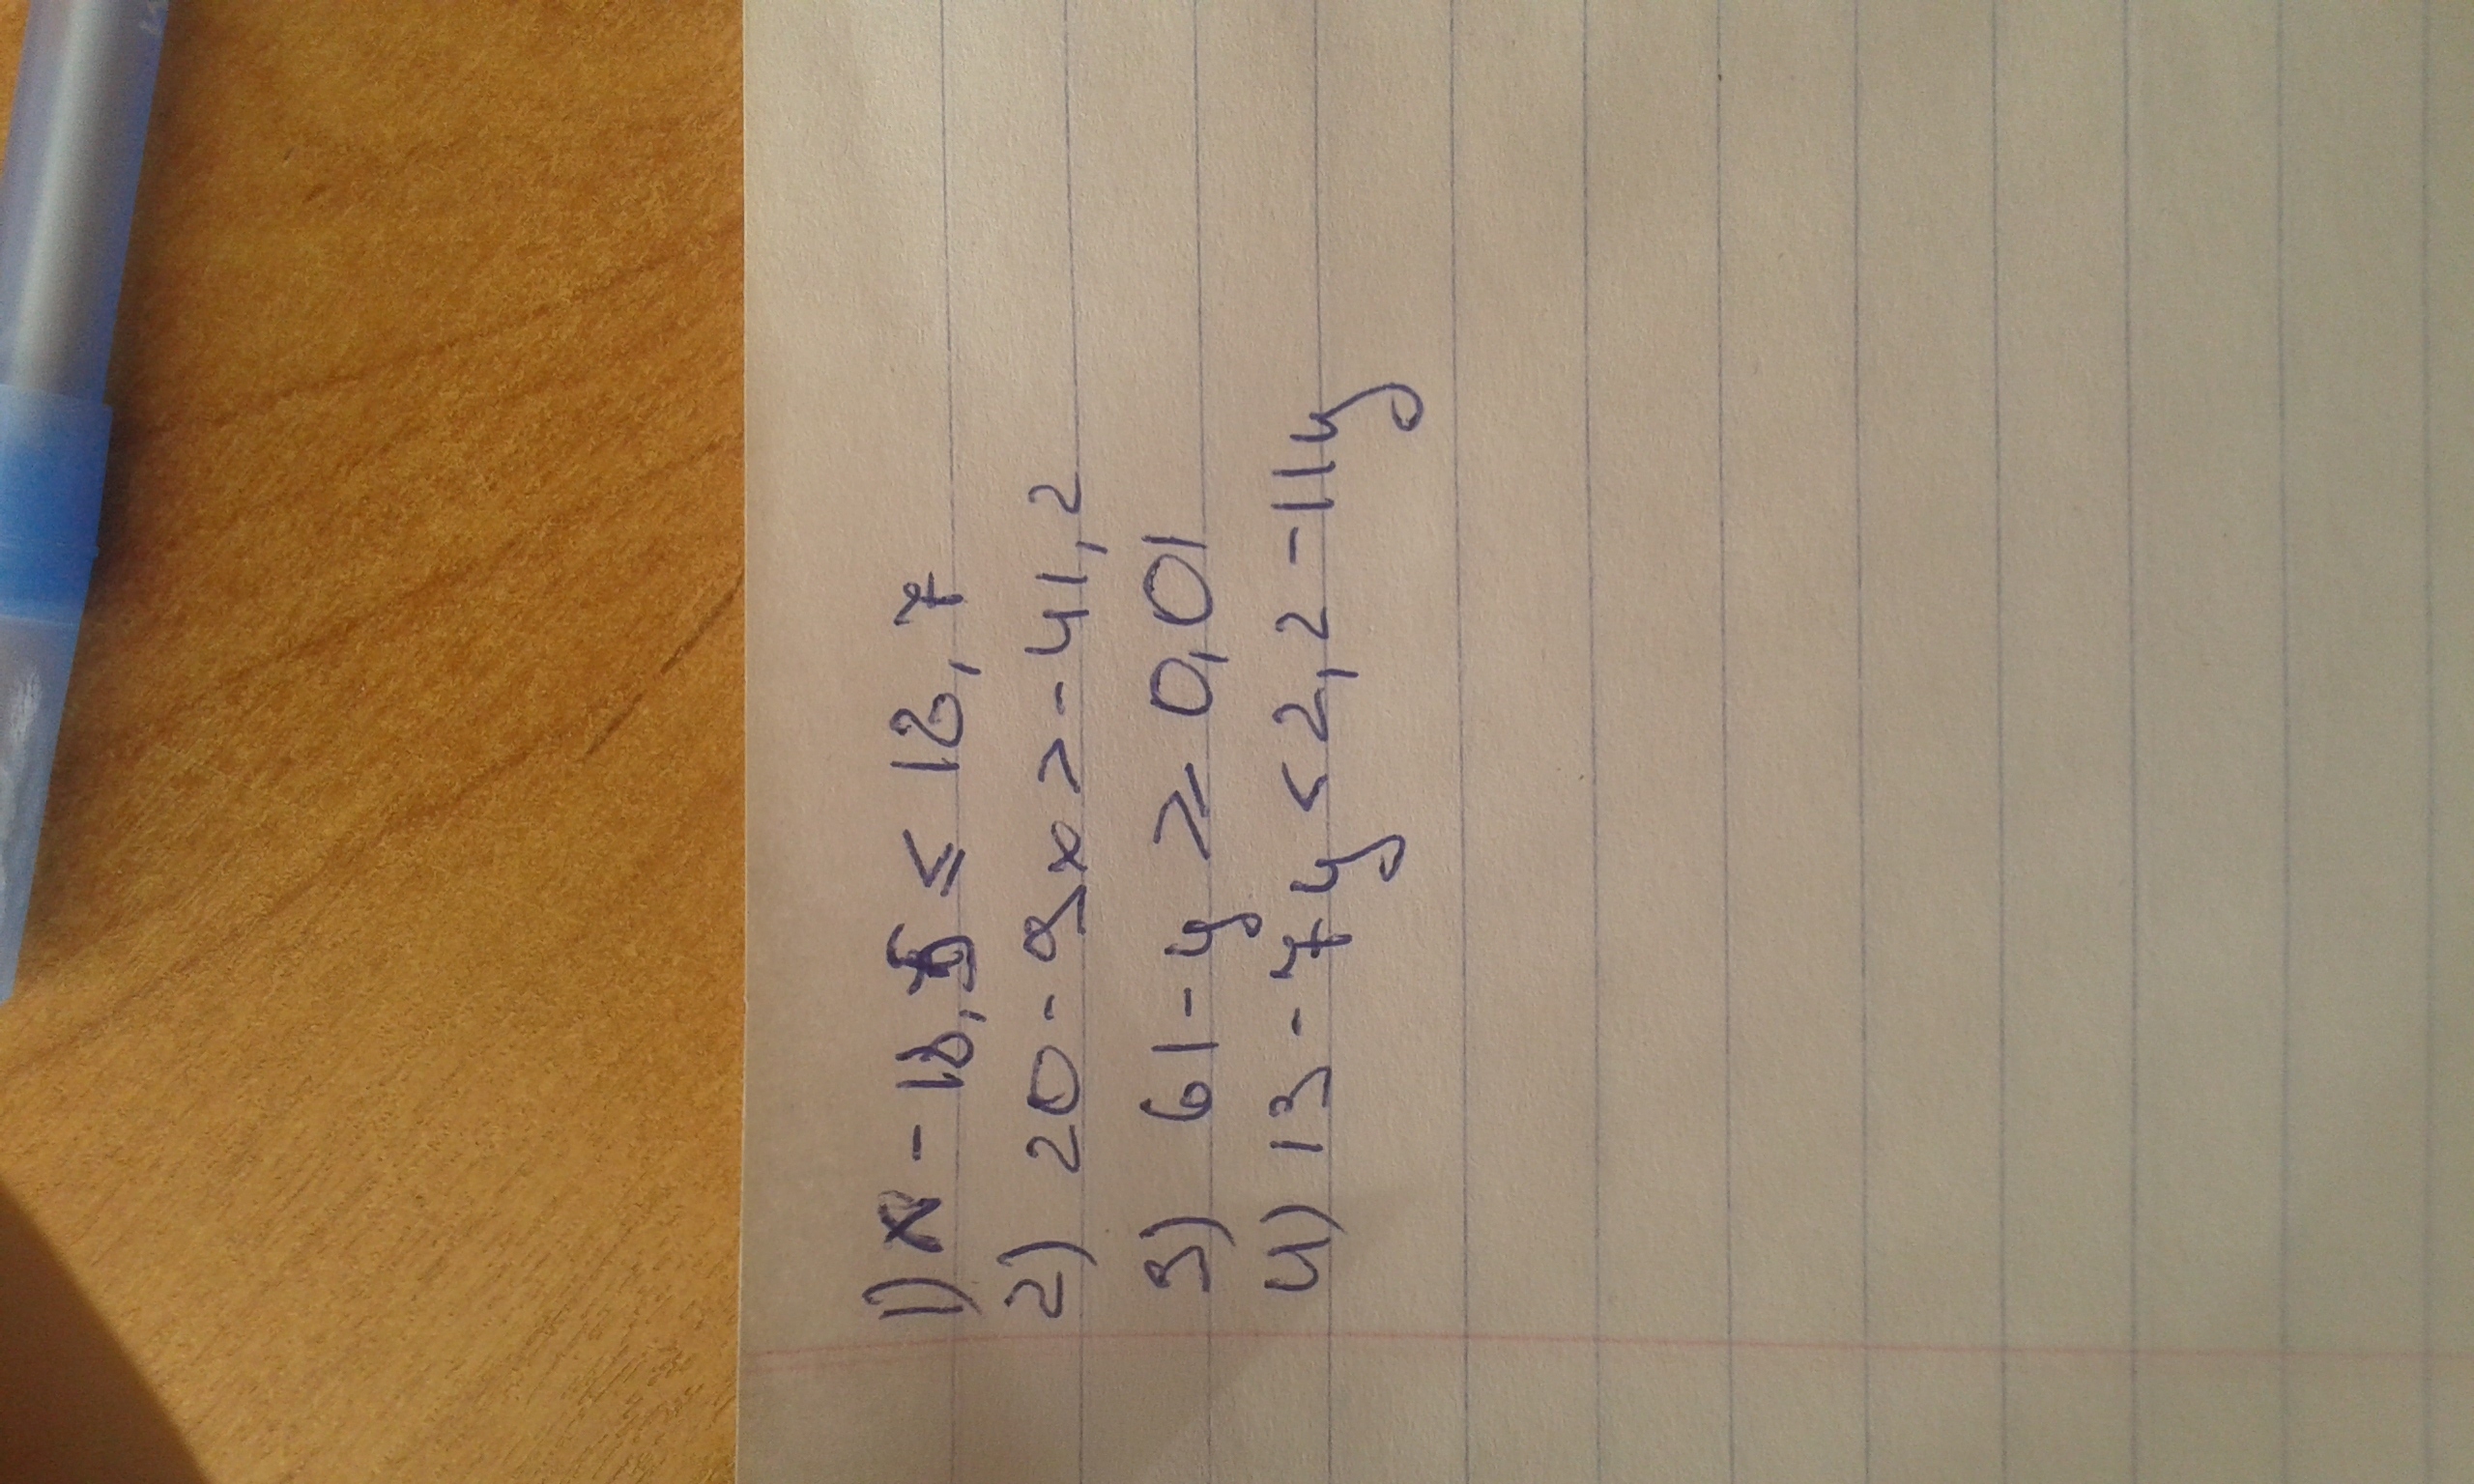 1) x - 18,5 ≤ 18,7
2) 20 - 9x > - 41,2
3) 61 - y ⩾ 0,01
4) 13 - 7y < 2,2 - 11y